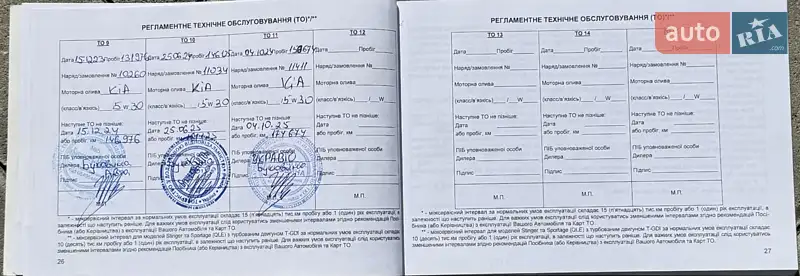 РЕГЛАМЕНТНЕ ТЕХНІЧНЕ ОБСЛУГОВУВАННЯ (ТО)*/**
ТО 9 ТО 10 ТО 11 ТО 12
Дата 15.12.23 Пробіг 131976 Дата 25.06.24 Пробіг Дата 04.10.24 Пробіг Дата Пробіг
Наряд/замовлення № 10260 Наряд/замовлення № 11034 Наряд/замовлення № 11411 Наряд/замовлення №
Моторна олива KIA Моторна олива KIA Моторна олива KIA Моторна олива
(класс/в'язкість) 5 W 30 (класс/в'язкість) 5 W 30 (класс/в'язкість) 5 W 30 (класс/в'язкість) / W
Наступне ТО не пізніше: Наступне ТО не пізніше: Наступне ТО не пізніше: Наступне ТО не пізніше:
Дата 15.12.24 Дата 25.06.25 Дата 04.10.25 Дата
або пробіг, км 146976 або пробіг, км або пробіг, км або пробіг, км
ПІБ уповноваженої особи ПІБ уповноваженої особи
Дилера Дилера
Підпис Підпис
УКРАВТО
М.П.
* - міжсервісний інтервал за нормальних умов експлуатації складає 15 (п'ятнадцять) тис.км пробігу або 1 (один) рік експлуатації, в
залежності що наступить раніше. Для важких умов експлуатації слід користуватись зменшеними інтервалами згідно рекомендацій Посі-
бника (або Керівництва) з експлуатації Вашого Автомобіля та Карт ТО.
** - міжсервісний інтервал для моделей Stinger та Sportage (QLE) з турбованим двигуном T-GDI за нормальних умов експлуатації складає
10 (десять) тис.км пробігу або 1 (один) рік експлуатації, в залежності що наступить раніше. Для важких умов експлуатації слід користуватись
зменшеними інтервалами згідно рекомендацій Посібника (або Керівництва) з експлуатації Вашого Автомобіля та Карт ТО.
26
РЕГЛАМЕНТНЕ ТЕХНІЧНЕ ОБСЛУГОВУВАННЯ (ТО)*/**
ТО 13 ТО 14
Дата Пробіг Дата Пробіг Дата Пробіг
Наряд/замовлення № Наряд/замовлення № Наряд/замовлення №
Моторна олива Моторна олива Моторна олива
(класс/в'язкість) / W (класс/в'язкість) / W (класс/в'язкість) / W
Наступне ТО не пізніше: Наступне ТО не пізніше: Наступне ТО не пізніше:
Дата Дата Дата
або пробіг, км або пробіг, км або пробіг, км
ПІБ уповноваженої особи ПІБ уповноваженої особи ПІБ уповноваженої особи
Дилера Дилера Дилера
Підпис Підпис Підпис
М.П. М.П. М.П.
* - міжсервісний інтервал за нормальних умов експлуатації складає 15 (п'ятнадцять) тис.км пробігу або 1 (один) рік експлуатації, в
залежності що наступить раніше. Для важких умов експлуатації слід користуватись зменшеними інтервалами згідно рекомендацій Посі-
бника (або Керівництва) з експлуатації Вашого Автомобіля та Карт ТО.
** - міжсервісний інтервал для моделей Stinger та Sportage (QLE) з турбованим двигуном T-GDI за нормальних умов експлуатації складає
10 (десять) тис.км пробігу або 1 (один) рік експлуатації, в залежності що наступить раніше. Для важких умов експлуатації слід користуватись
зменшеними інтервалами згідно рекомендацій Посібника (або Керівництва) з експлуатації Вашого Автомобіля та Карт ТО.
27
auto RIA.com